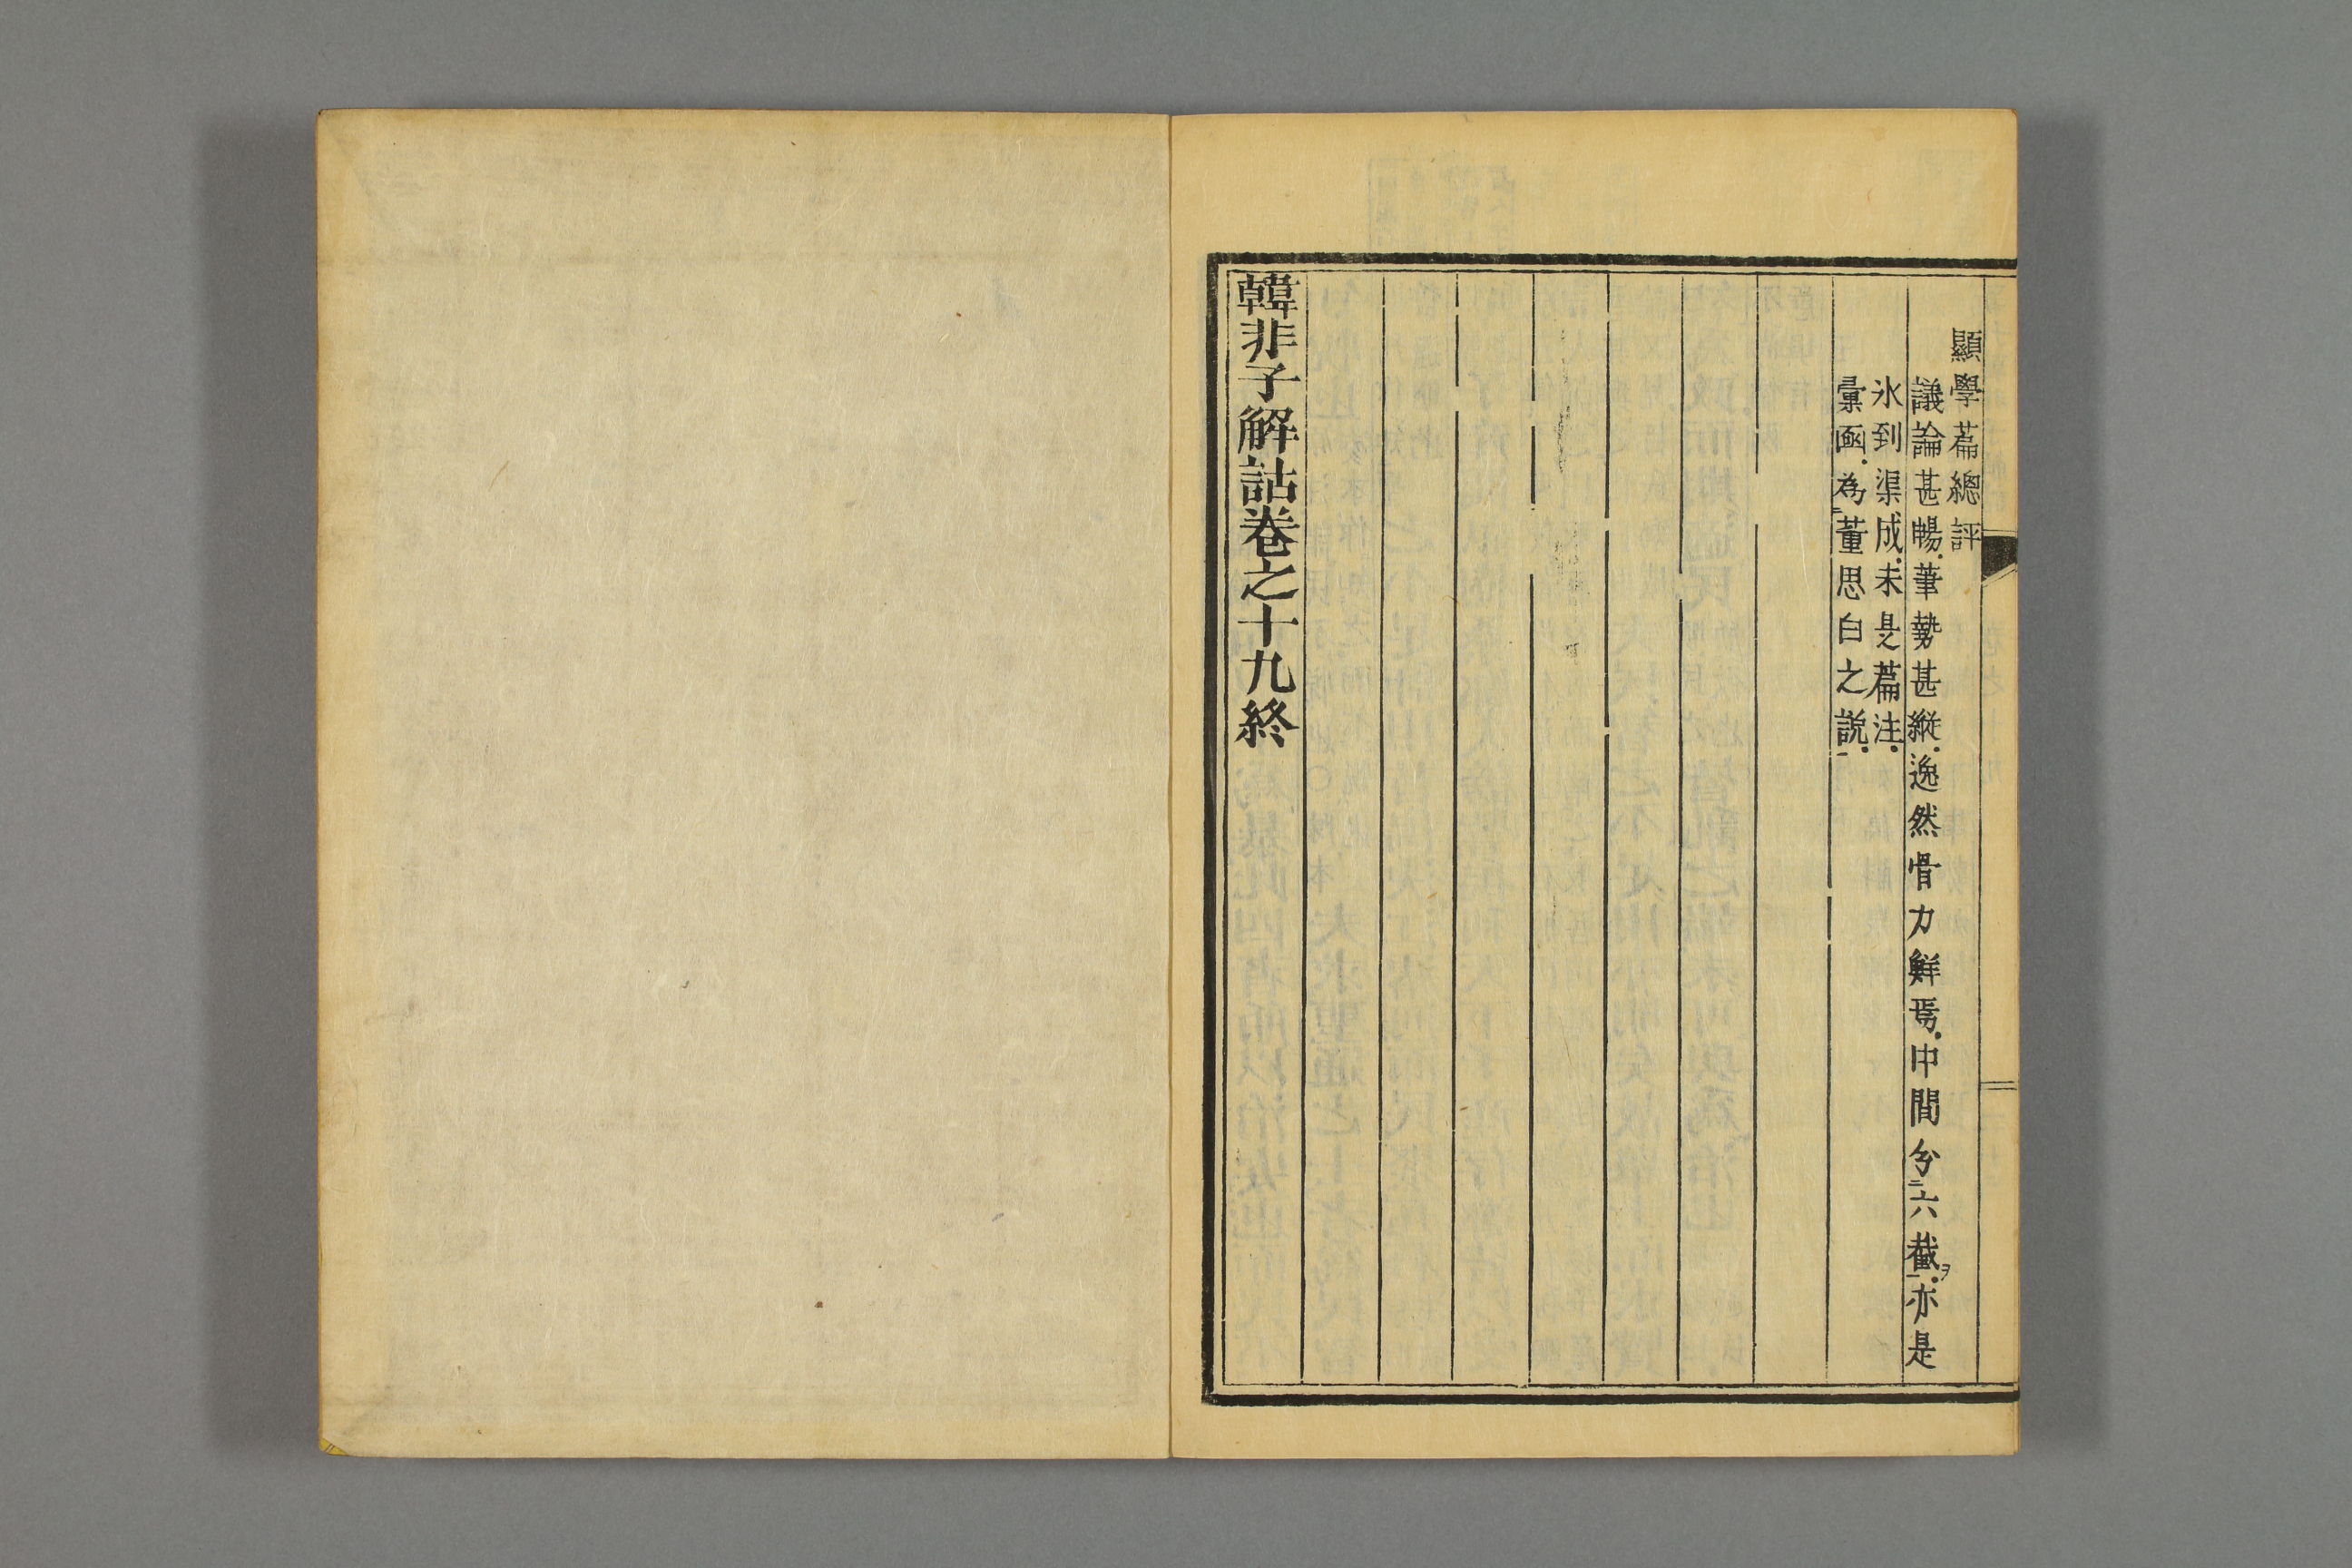 顯學篇總評
議論甚暢.筆勢甚縱.逸然骨力鮮焉.中間分二六截一ヲ.亦是
水到渠成.未是篇注.
彙函.為二董思白之說一.
韓非子解詁卷之十九終